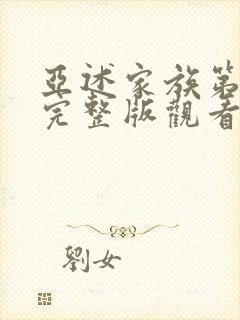 亞述家族第
完整版觀看
劉女